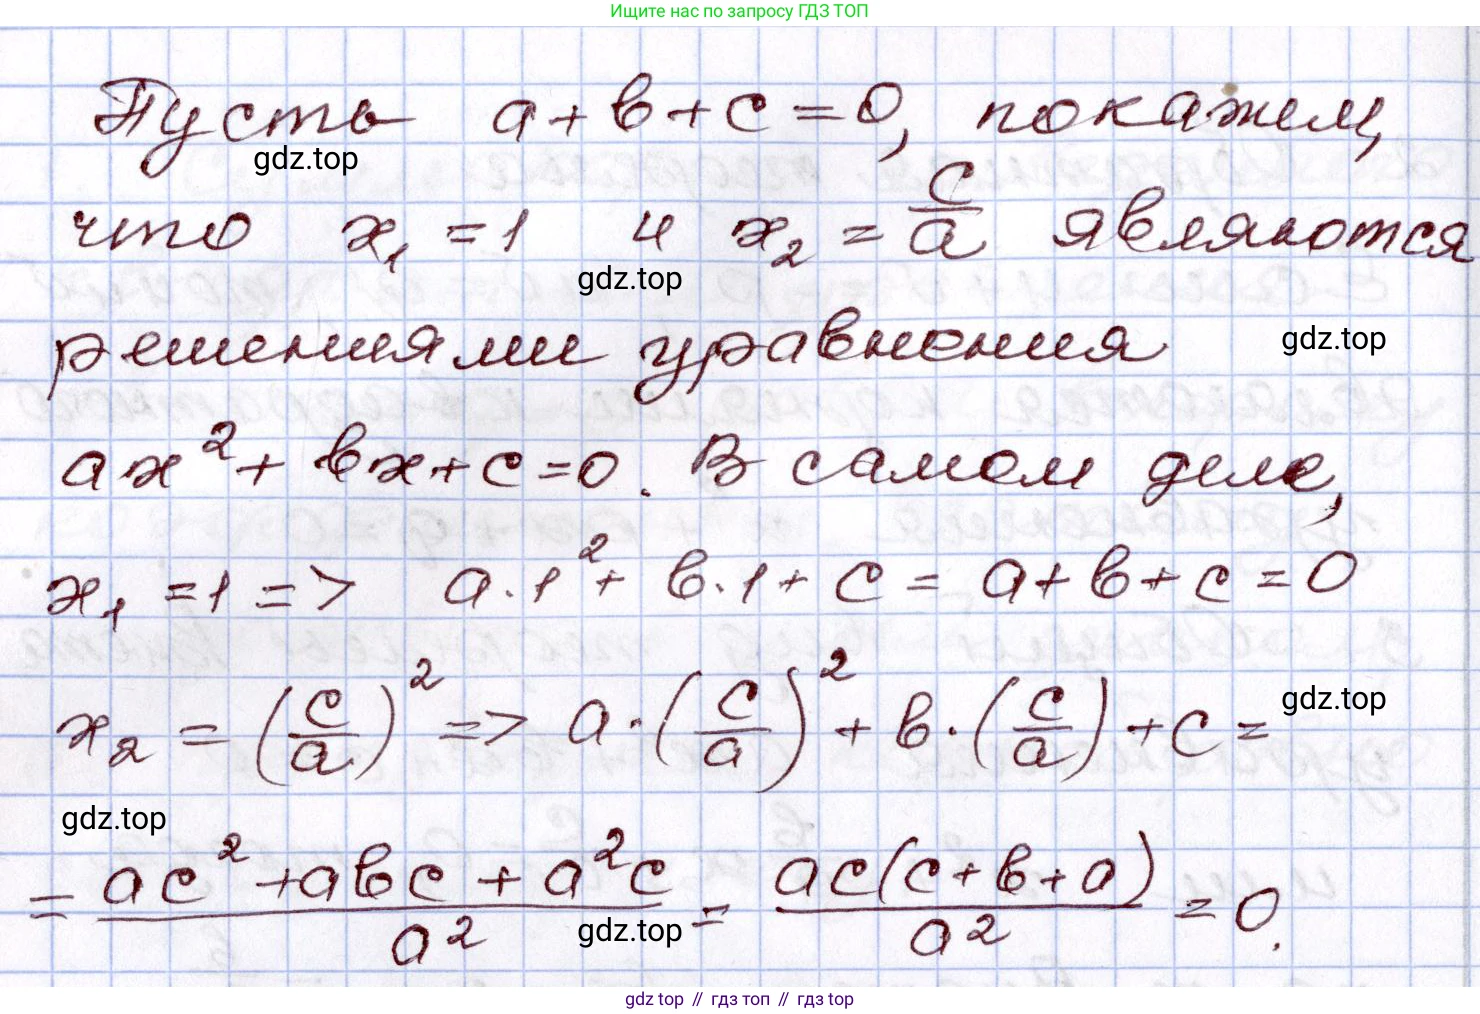 Ищите нас по запросу ГДЗ ТОП
Пусть a + b + c = 0, покажем,
gdz.top
что x₁ = 1 и x₂ = c/a являются
gdz.top
решениями уравнения
gdz.top
ax² + bx + c = 0. В самом деле,
x₁ = 1 => a · 1² + b · 1 + c = a + b + c = 0
x₂ = (c/a)² => a · (c/a)² + b · (c/a) + c =
gdz.top
gdz.top
= (ac² + abc + a²c)/a² = ac(c + b + a)/a² = 0.
gdz.top
gdz top // гдз топ // гдз top